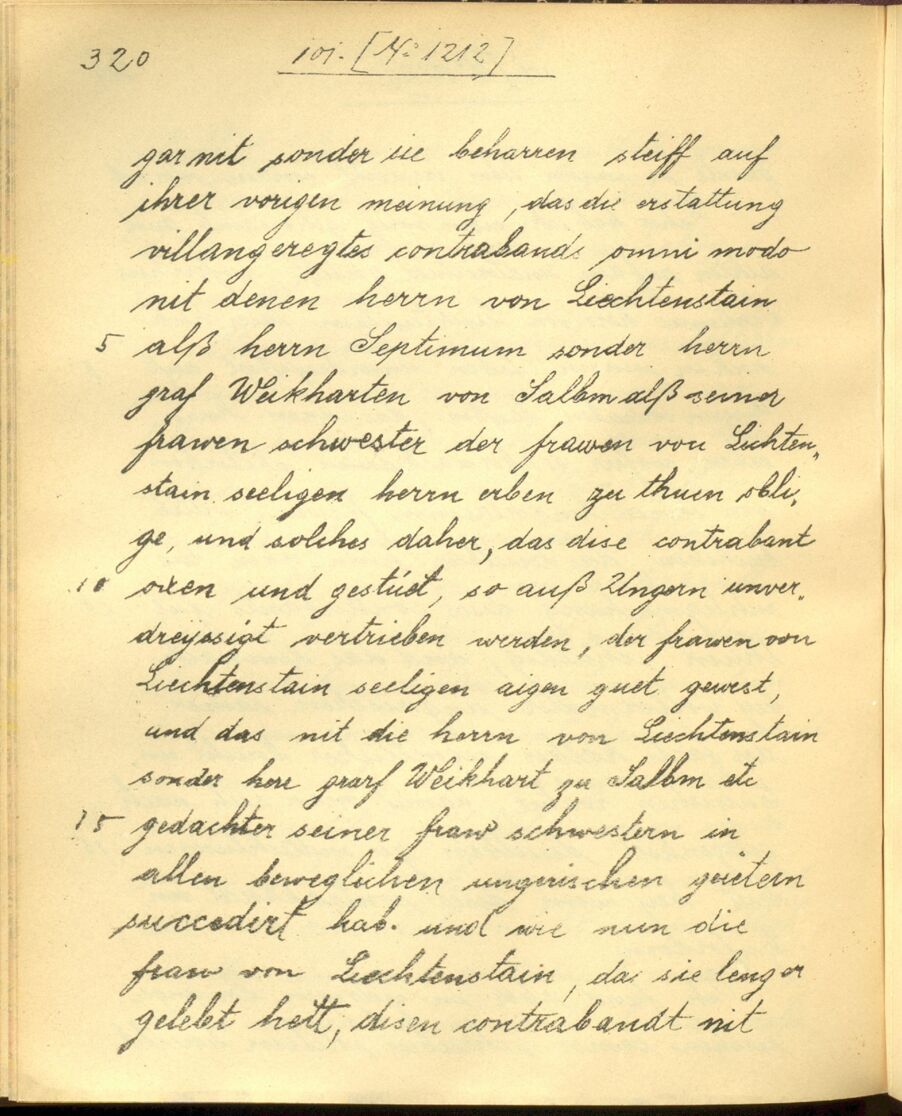 320 101. [No 1212]
gar nit sonder sie beharren steiff auf
ihrer vorigen meinung, das die erstattung
villangeregtes contrabands omni modo
nit denen herrn von Liechtenstain
5 alß herrn Septimum sonder herrn
graf Weikharten von Salbm alß seiner
frawen schwester der frawen von Liechten„
stain seeligen herrn erben zu thuen obli„
ge, und solches daher, das dise contrabant
10 oxen und gestüet, so auß Ungern unver„
dreyssigt vertrieben werden, der frawen von
Liechtenstain seeligen aigen guet gewest,
und das nit die herrn von Liechtenstain
sonder herr graf Weikhart zu Salbm etc
15 gedachter seiner fraw schwestern in
allen beweglichen ungerischen güetern
succedirt hab. und wie nun die
fraw von Liechtenstain, da sie lenger
gelebt hett, disen contrabandt nit